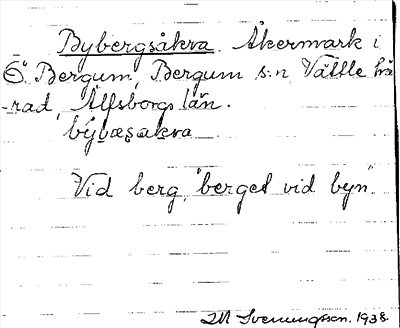 Bybergsåkra. Åkermark i
Ö. Bergum, Bergum s:n, Vättle hä
-rad, Älfsborgs län.
býbæs̨akra
Vid berg, "berget vid byn".
Svenungsson. 1938.